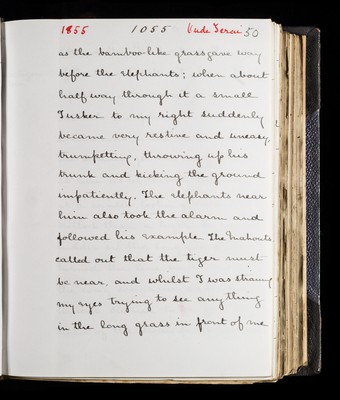 1855 1055 Oude Terai 50
as the bamboo-like grass gave way
before the elephants; when about
half way through it a small
Tusker to my right suddenly
became very restive and uneasy,
trumpetting, throwing up his
trunk and kicking the ground
impatiently. The elephants near
him also took the alarm and
followed his example The Mahouts
called out that the tiger must
be near, and whilst I was straining
my eyes trying to see any thing
in the long grass in front of me